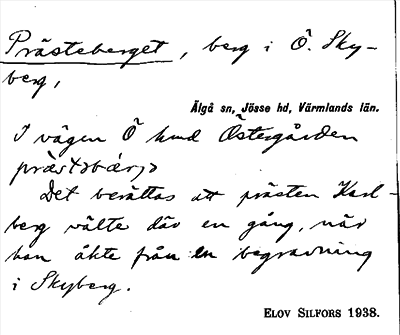 Prästeberget, berg i Ö. Sky-
berg,
Älgå sn, Jösse hd, Värmlands län.
I vägen Ö hmd Östergården
Det berättas att prästen Karl-
berg välte där en gång, när
han åkte från en begravning
i Skyberg.
ELOV SILFORS 1938.